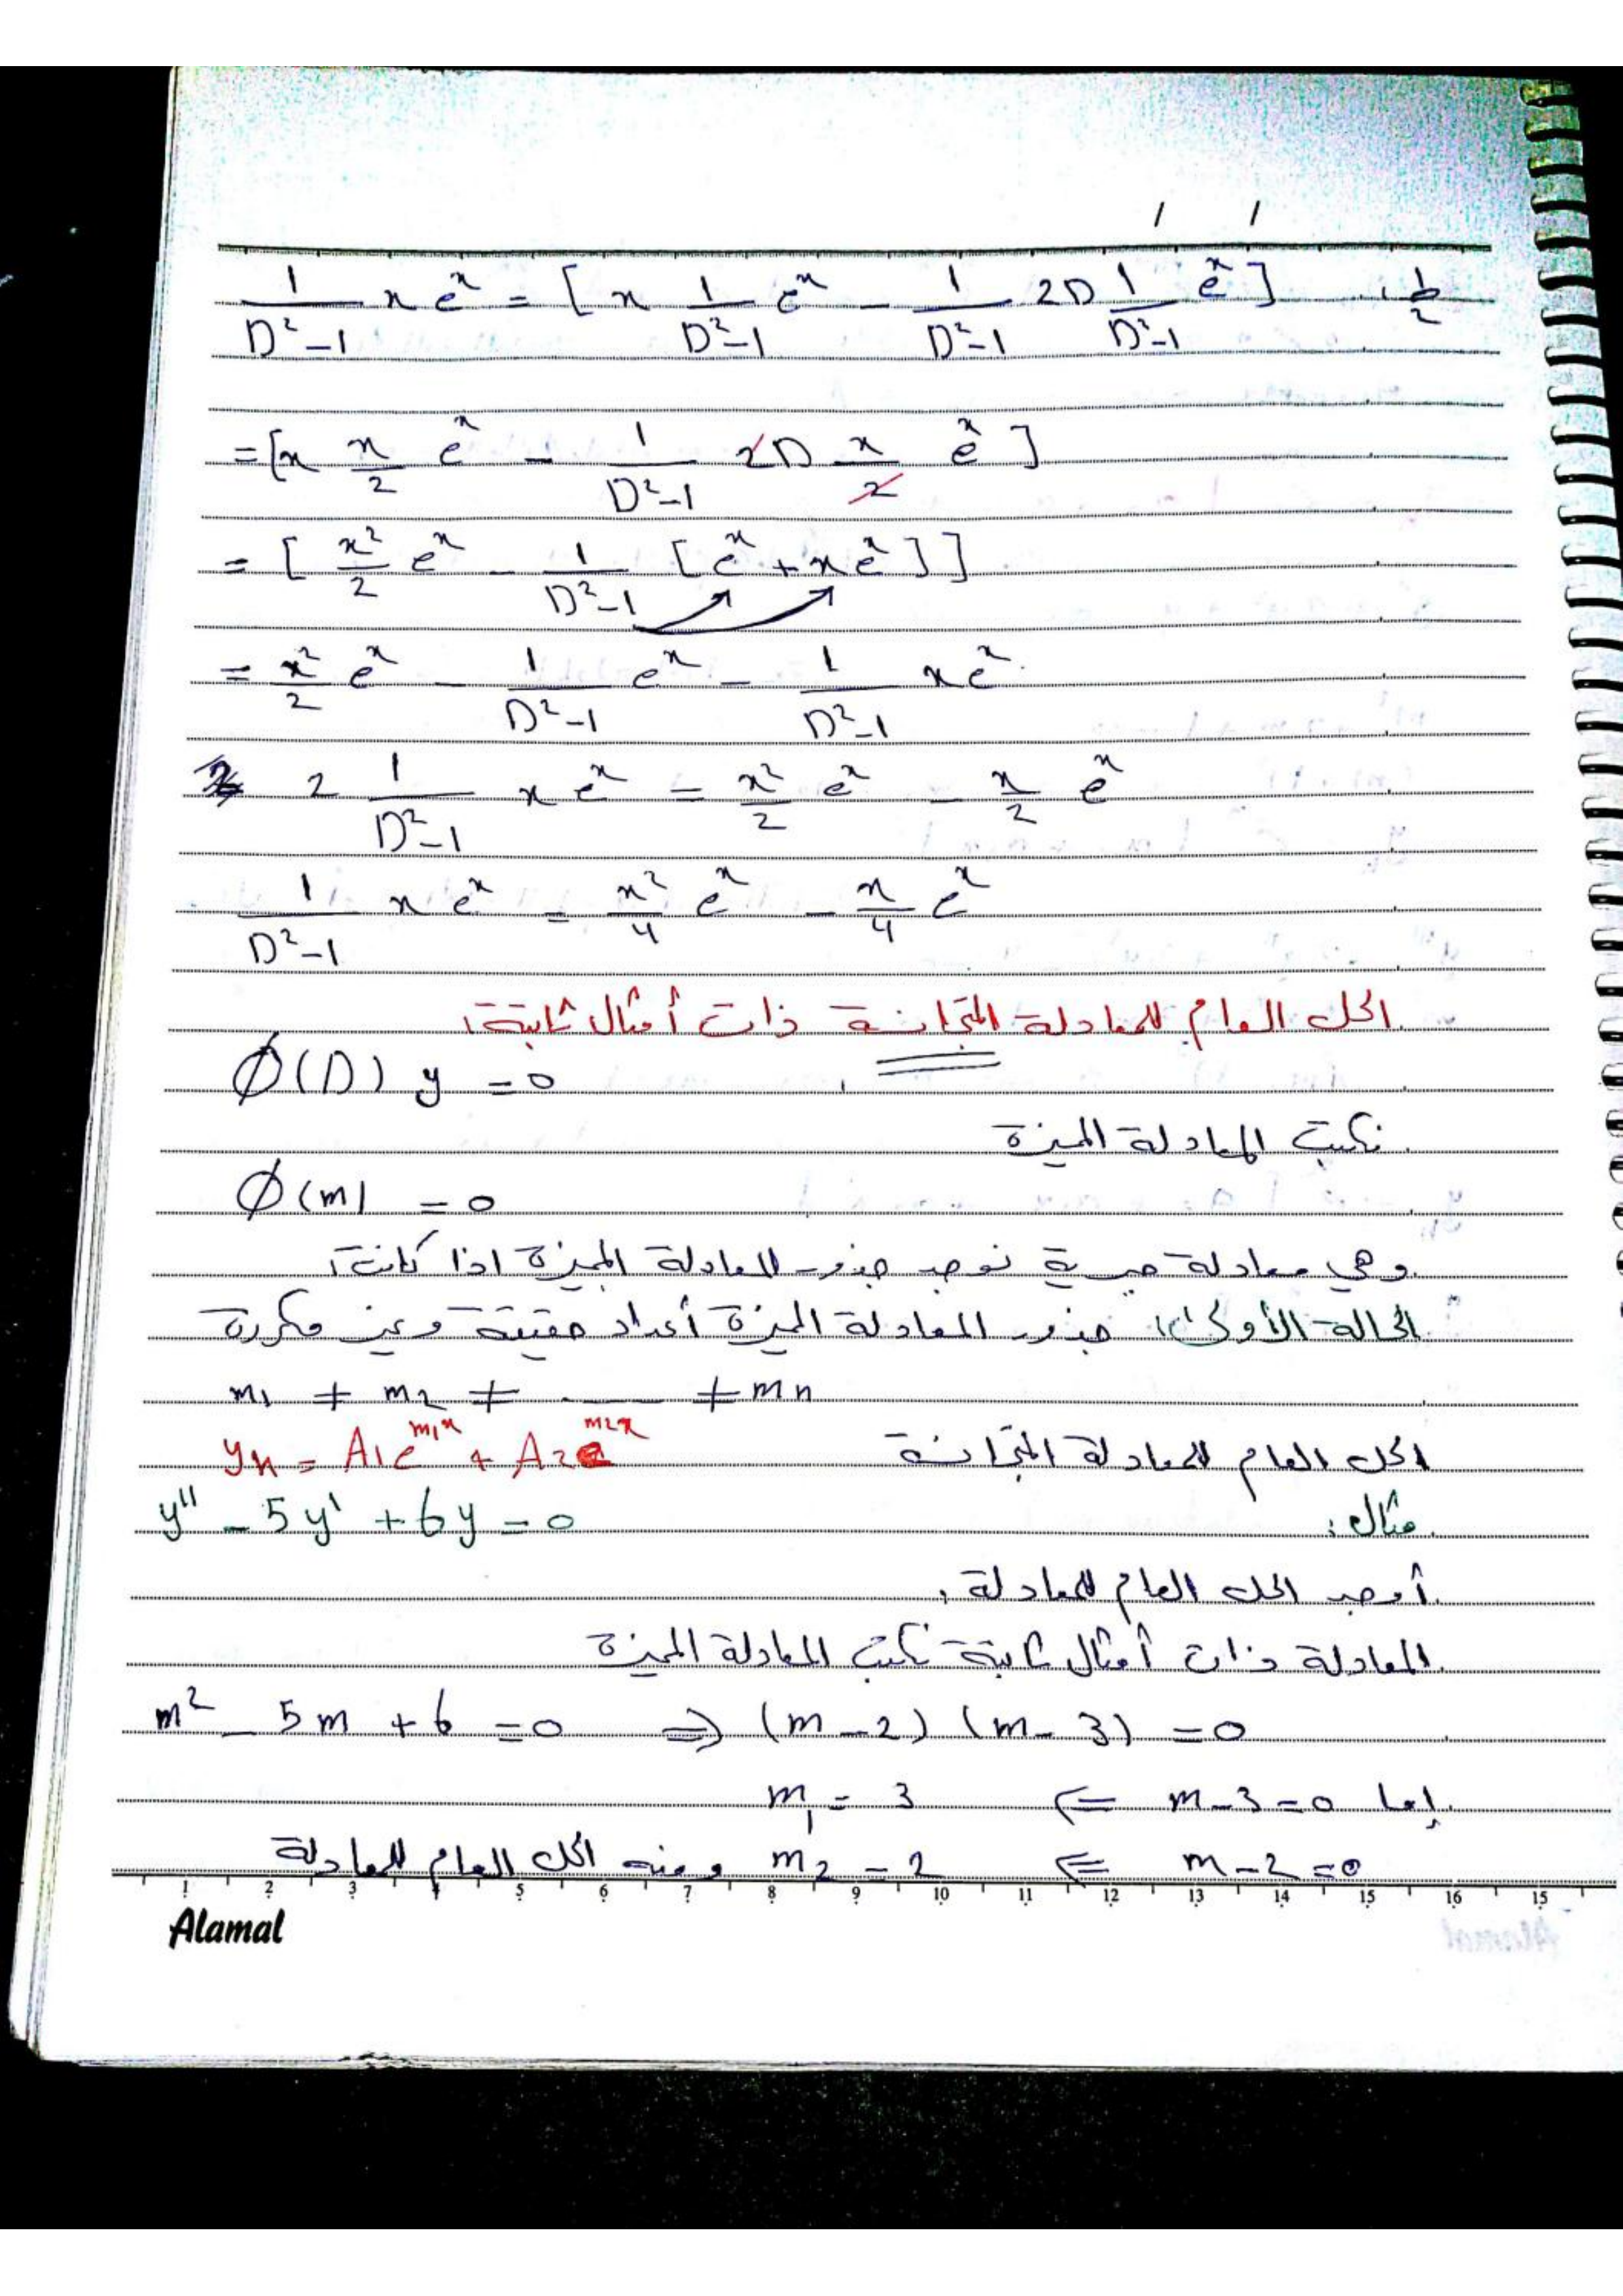 1/(D²-1) x eˣ = [ x 1/(D²-1) eˣ - 1/(D²-1) 2D 1/(D²-1) eˣ ] ط2
= [ x x/2 eˣ - 1/(D²-1) 2D x/2 eˣ ]
= [ x²/2 eˣ - 1/(D²-1) [ eˣ + x eˣ ] ]
= x²/2 eˣ - 1/(D²-1) eˣ - 1/(D²-1) x eˣ
2 1/(D²-1) x eˣ = x²/2 eˣ - x/2 eˣ
1/(D²-1) x eˣ = x²/4 eˣ - x/4 eˣ
الحل العام للمعادلة المتجانسة ذات أمثال ثابتة:
Ø(D) y = 0
نكتب المعادلة المميزة
Ø(m) = 0
وهي معادلة جبرية نوجد جذور المعادلة المميزة اذا كانت:
الحالة الأولى: جذور المعادلة المميزة أعداد حقيقية وغير مكررة
m₁ ≠ m₂ ≠ ___ ≠ mn
الحل العام للمعادلة المتجانسة yₕ = A₁e^(m₁x) + A₂e^(m₂x)
مثال: y'' - 5y' + 6y = 0
أوجد الحل العام للمعادلة.
المعادلة ذات أمثال ثابتة نكتب المعادلة المميزة
m² - 5m + 6 = 0 ⇒ (m-2) (m-3) = 0
إما m-3=0 ⇐ m₁ = 3
m-2=0 ⇐ m₂ = 2 ومنه الحل العام للمعادلة
1 2 3 4 5 6 7 8 9 10 11 12 13 14 15 16 15
Alamal